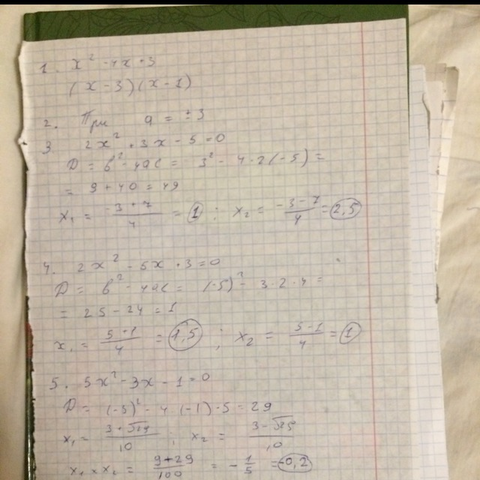 1. x² - 4x + 3
(x - 3)(x - 1)
2. При a = ±3
3. 2x² + 3x - 5 = 0
D = b² - 4ac = 3² - 4·2(-5) =
= 9 + 40 = 49
x₁ = (-3 + 7)/4 = 1 ; x₂ = (-3 - 7)/4 = 2,5
4. 2x² - 5x + 3 = 0
D = b² - 4ac = (-5)² - 3·2·4 =
= 25 - 24 = 1
x₁ = (5 + 1)/4 = 1,5 ; x₂ = (5 - 1)/4 = 1
5. 5x² - 3x - 1 = 0
D = (-3)² - 4(-1)·5 = 29
x₁ = ; x₂ =
x₁ · x₂ = (9 + 29)/100 = -1/5 = -0,2